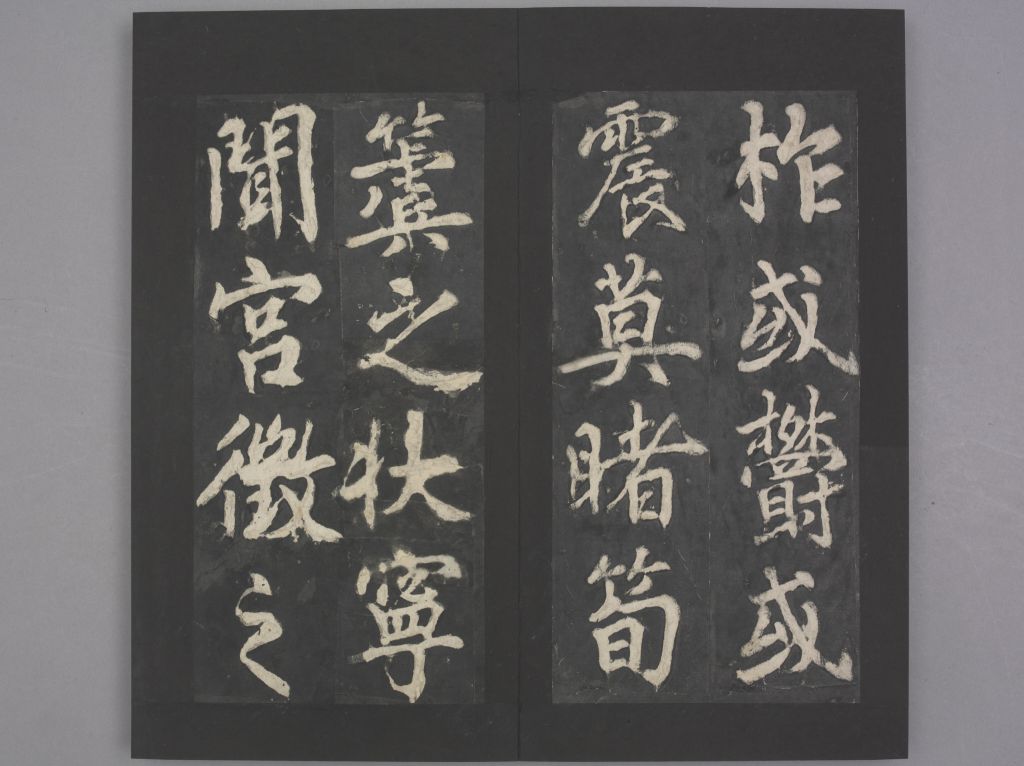 柞或鬱或
震莫睹筍
簴之狀寧
聞宮徵之